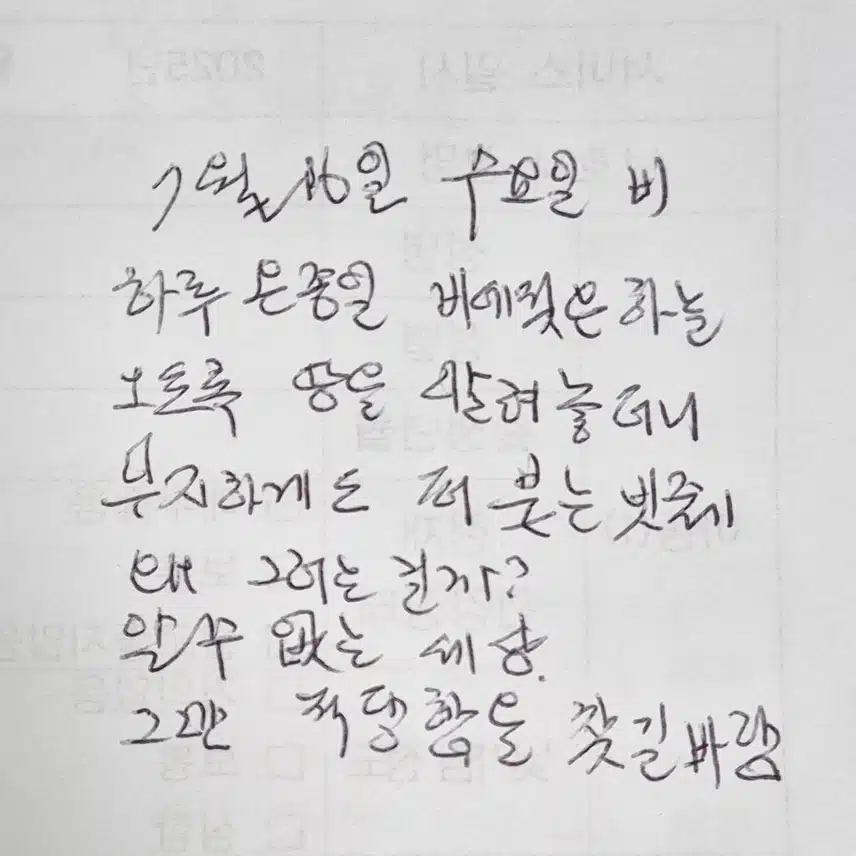 7월 16일 수요일 비
하루 온종일 비에젖은 하늘
오도록 땅을 말려놓더니
무지하게도 퍼 붓는 빗줄기
왜 그러는 걸까?
알수 없는 세상.
그만 적당함을 찾길 바람
서비스 일시 2025년